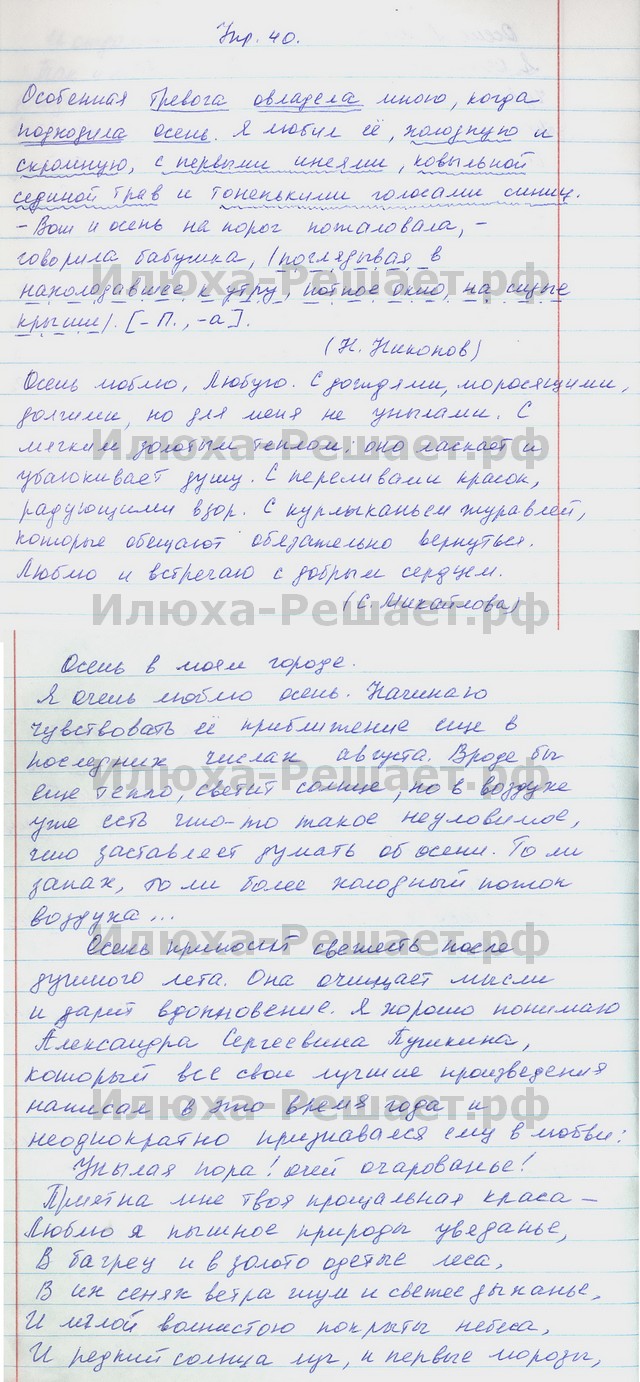 Упр. 40.
Особенная тревога овладела мною, когда
подходила осень. Я любил её, холодную и
скромную, с первыми инеями, ковыльной
сединой трав и тоненькими голосами синиц.
- Вот и осень на порог пожаловала, -
говорила бабушка, (поглядывая в
нахолодавшее к утру, потное окно, на сизые
крыши). [- П. , - а].
(Н. Никонов)
Осень люблю, Любую. С дождями, моросящими,
долгими, но для меня не унылами. С
мягким золотым теплом: оно ласкает и
убаюкивает душу. С переливами красок,
радующими взор. С курлыканьем журавлей,
которые обещают обязательно вернуться.
Люблю и встречаю с добрым сердцем.
(С. Михайлова)
Осень в моем городе.
Я очень люблю осень. Начинаю
чувствовать её приближение еще в
последних числах августа. Вроде бы
еще тепло, светит солнце, но в воздухе
уже есть что-то такое неуловимое,
что заставляет думать об осени. То ли
запах, то ли более холодный поток
воздуха...
Осень приносит свежесть после
душного лета. Она очищает мысли
и дарит вдохновение. Я хорошо понимаю
Александра Сергеевича Пушкина,
который все свои лучшие произведения
написал в это время года и
неоднократно признавался ему в любви:
Унылая пора! очей очарованье!
Приятна мне твоя прощальная краса -
Люблю я пышное природы увяданье,
В багрец и в золото одетые леса,
В их сенях ветра шум и свежее дыханье,
И мглой волнистою покрыты небеса,
И редкий солнца луч, и первые морозы,
Илюха-Решает.рф
Илюха-Решает.рф
Илюха-Решает.рф
Илюха-Решает.рф
Илюха-Решает.рф
Илюха-Решает.рф